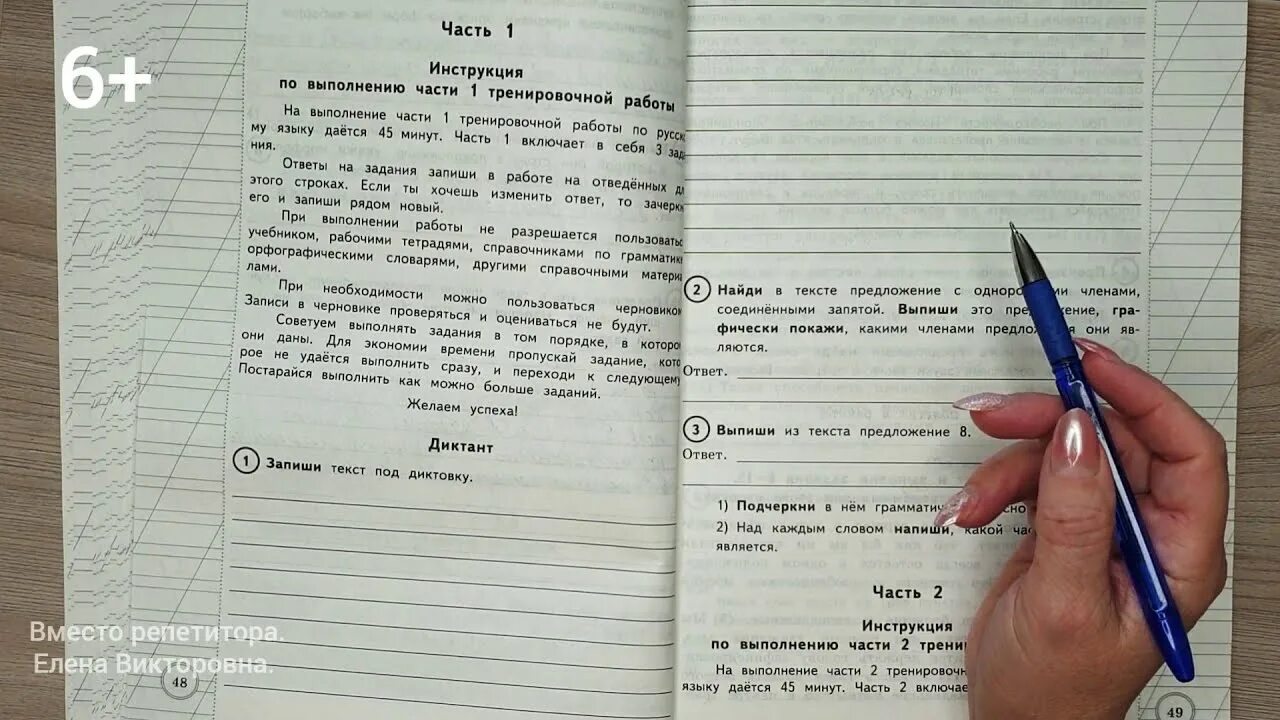 6+
Часть 1
Инструкция
по выполнению части 1 тренировочной работы
На выполнение части 1 тренировочной работы по русск
му языку даётся 45 минут. Часть 1 включает в себя 3 зад
ния.
Ответы на задания запиши в работе на отведённых д
этого строках. Если ты хочешь изменить ответ, то зачерк
его и запиши рядом новый.
При выполнении работы не разрешается пользоват
учебником, рабочими тетрадями, справочниками по грамматик
орфографическими словарями, другими справочными матери
лами.
При необходимости можно пользоваться черновико
Записи в черновике проверяться и оцениваться не будут.
Советуем выполнять задания в том порядке, в которо
они даны. Для экономии времени пропускай задание, кото
рое не удаётся выполнить сразу, и переходи к следующему
Постарайся выполнить как можно больше заданий.
Желаем успеха!
Диктант
1 Запиши текст под диктовку.
Вместо репетитора.
Елена Викторовна.
48
2 Найди в тексте предложение с одноро ми членами,
соединёнными запятой. Выпиши это пре ение, гра-
фически покажи, какими членами предло я они яв-
ляются.
Ответ.
3 Выпиши из текста предложение 8.
Ответ.
1) Подчеркни в нём граммати сно
2) Над каждым словом напиши, какой ча
является.
Часть 2
Инструкция
по выполнению части 2 трени
На выполнение части 2 тренировоч
языку даётся 45 минут. Часть 2 включае
49